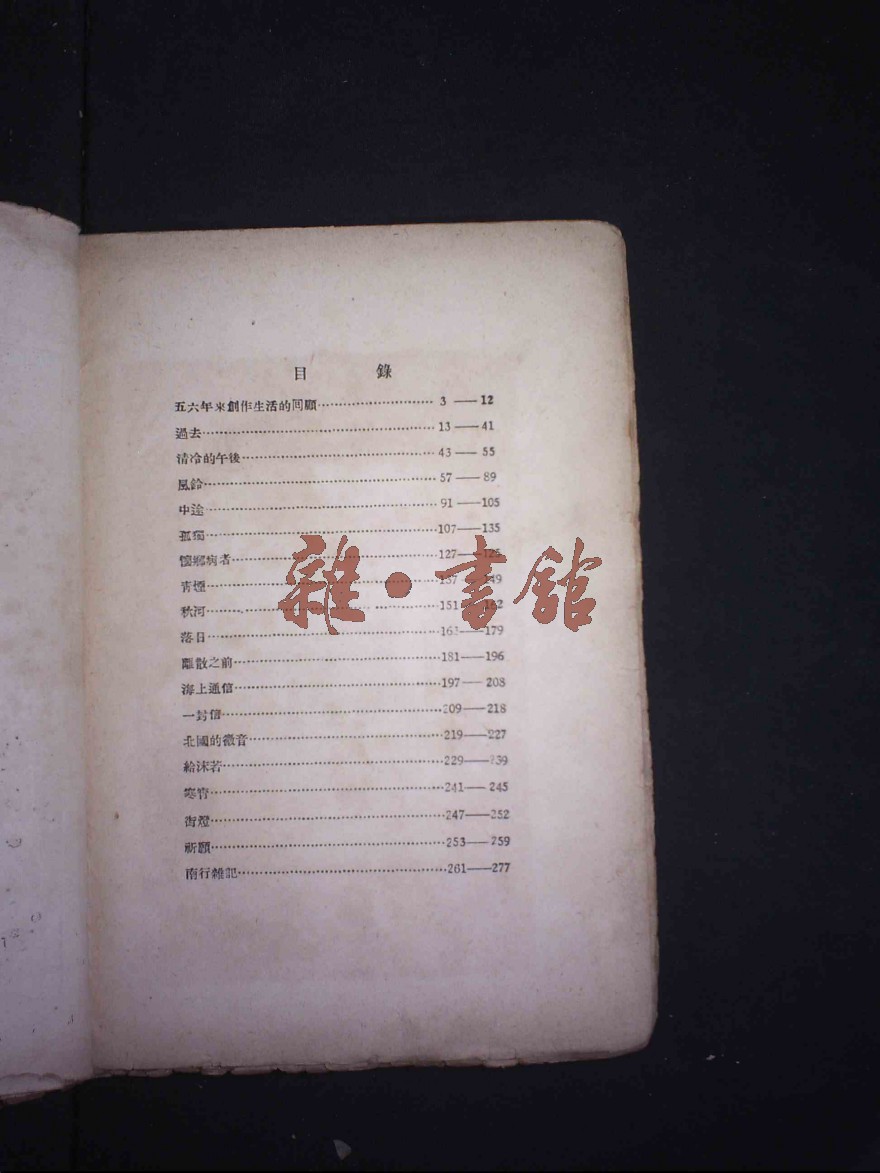 目 錄
五六年來創作生活的回顧 3 — 12
過去 13 — 41
清冷的午後 43 — 55
風鈴 57 — 89
中途 91 — 105
孤獨 107 — 135
懷鄉病者 127 —
青煙
秋河 151
落日 — 179
離散之前 181 — 196
海上通信 197 — 208
一封信 209 — 218
北國的微音 219 — 227
給沫若 229 — 239
寒宵 241 — 245
街燈 247 — 252
祈願 253 — 259
南行雜記 261 — 277
雜·書館